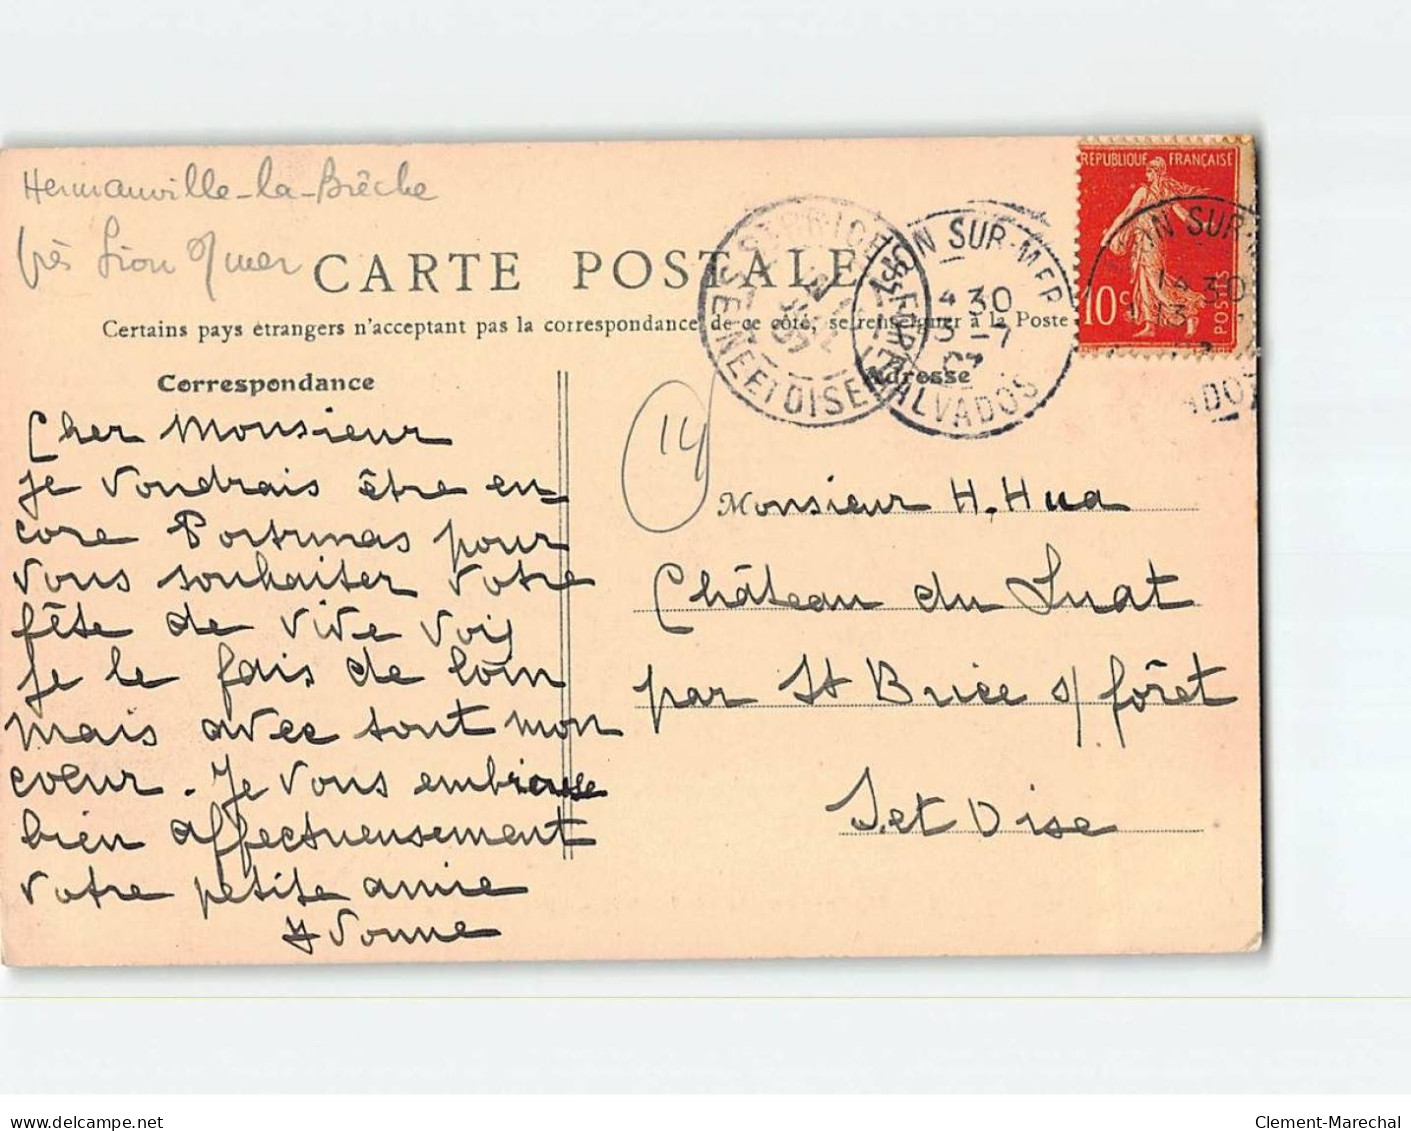 Hermanville-la-Brêche
près Lion s/ mer
CARTE POSTALE
Certains pays étrangers n'acceptant pas la correspondance de ce côté, se renseigner à la Poste
Correspondance
Adresse
RÉPUBLIQUE FRANÇAISE
10c
POSTES
ST BRICE-S-FORET
SEINE ET OISE
LION SUR-MER
4 30
13 -7
07
CALVADOS
LION SUR-
14 30
13
ADOS
14
Cher Monsieur
je voudrais être en-
core Portrunas pour
vous souhaiter votre
fête de vive voix
je le fais de loin
mais avec tout mon
cœur. Je vous embrasse
bien affectueusement
votre petite amie
Yvonne
Monsieur H. Hua
Château du Luat
par St Brice s/ forêt
S. et Oise
Clement-Marechal